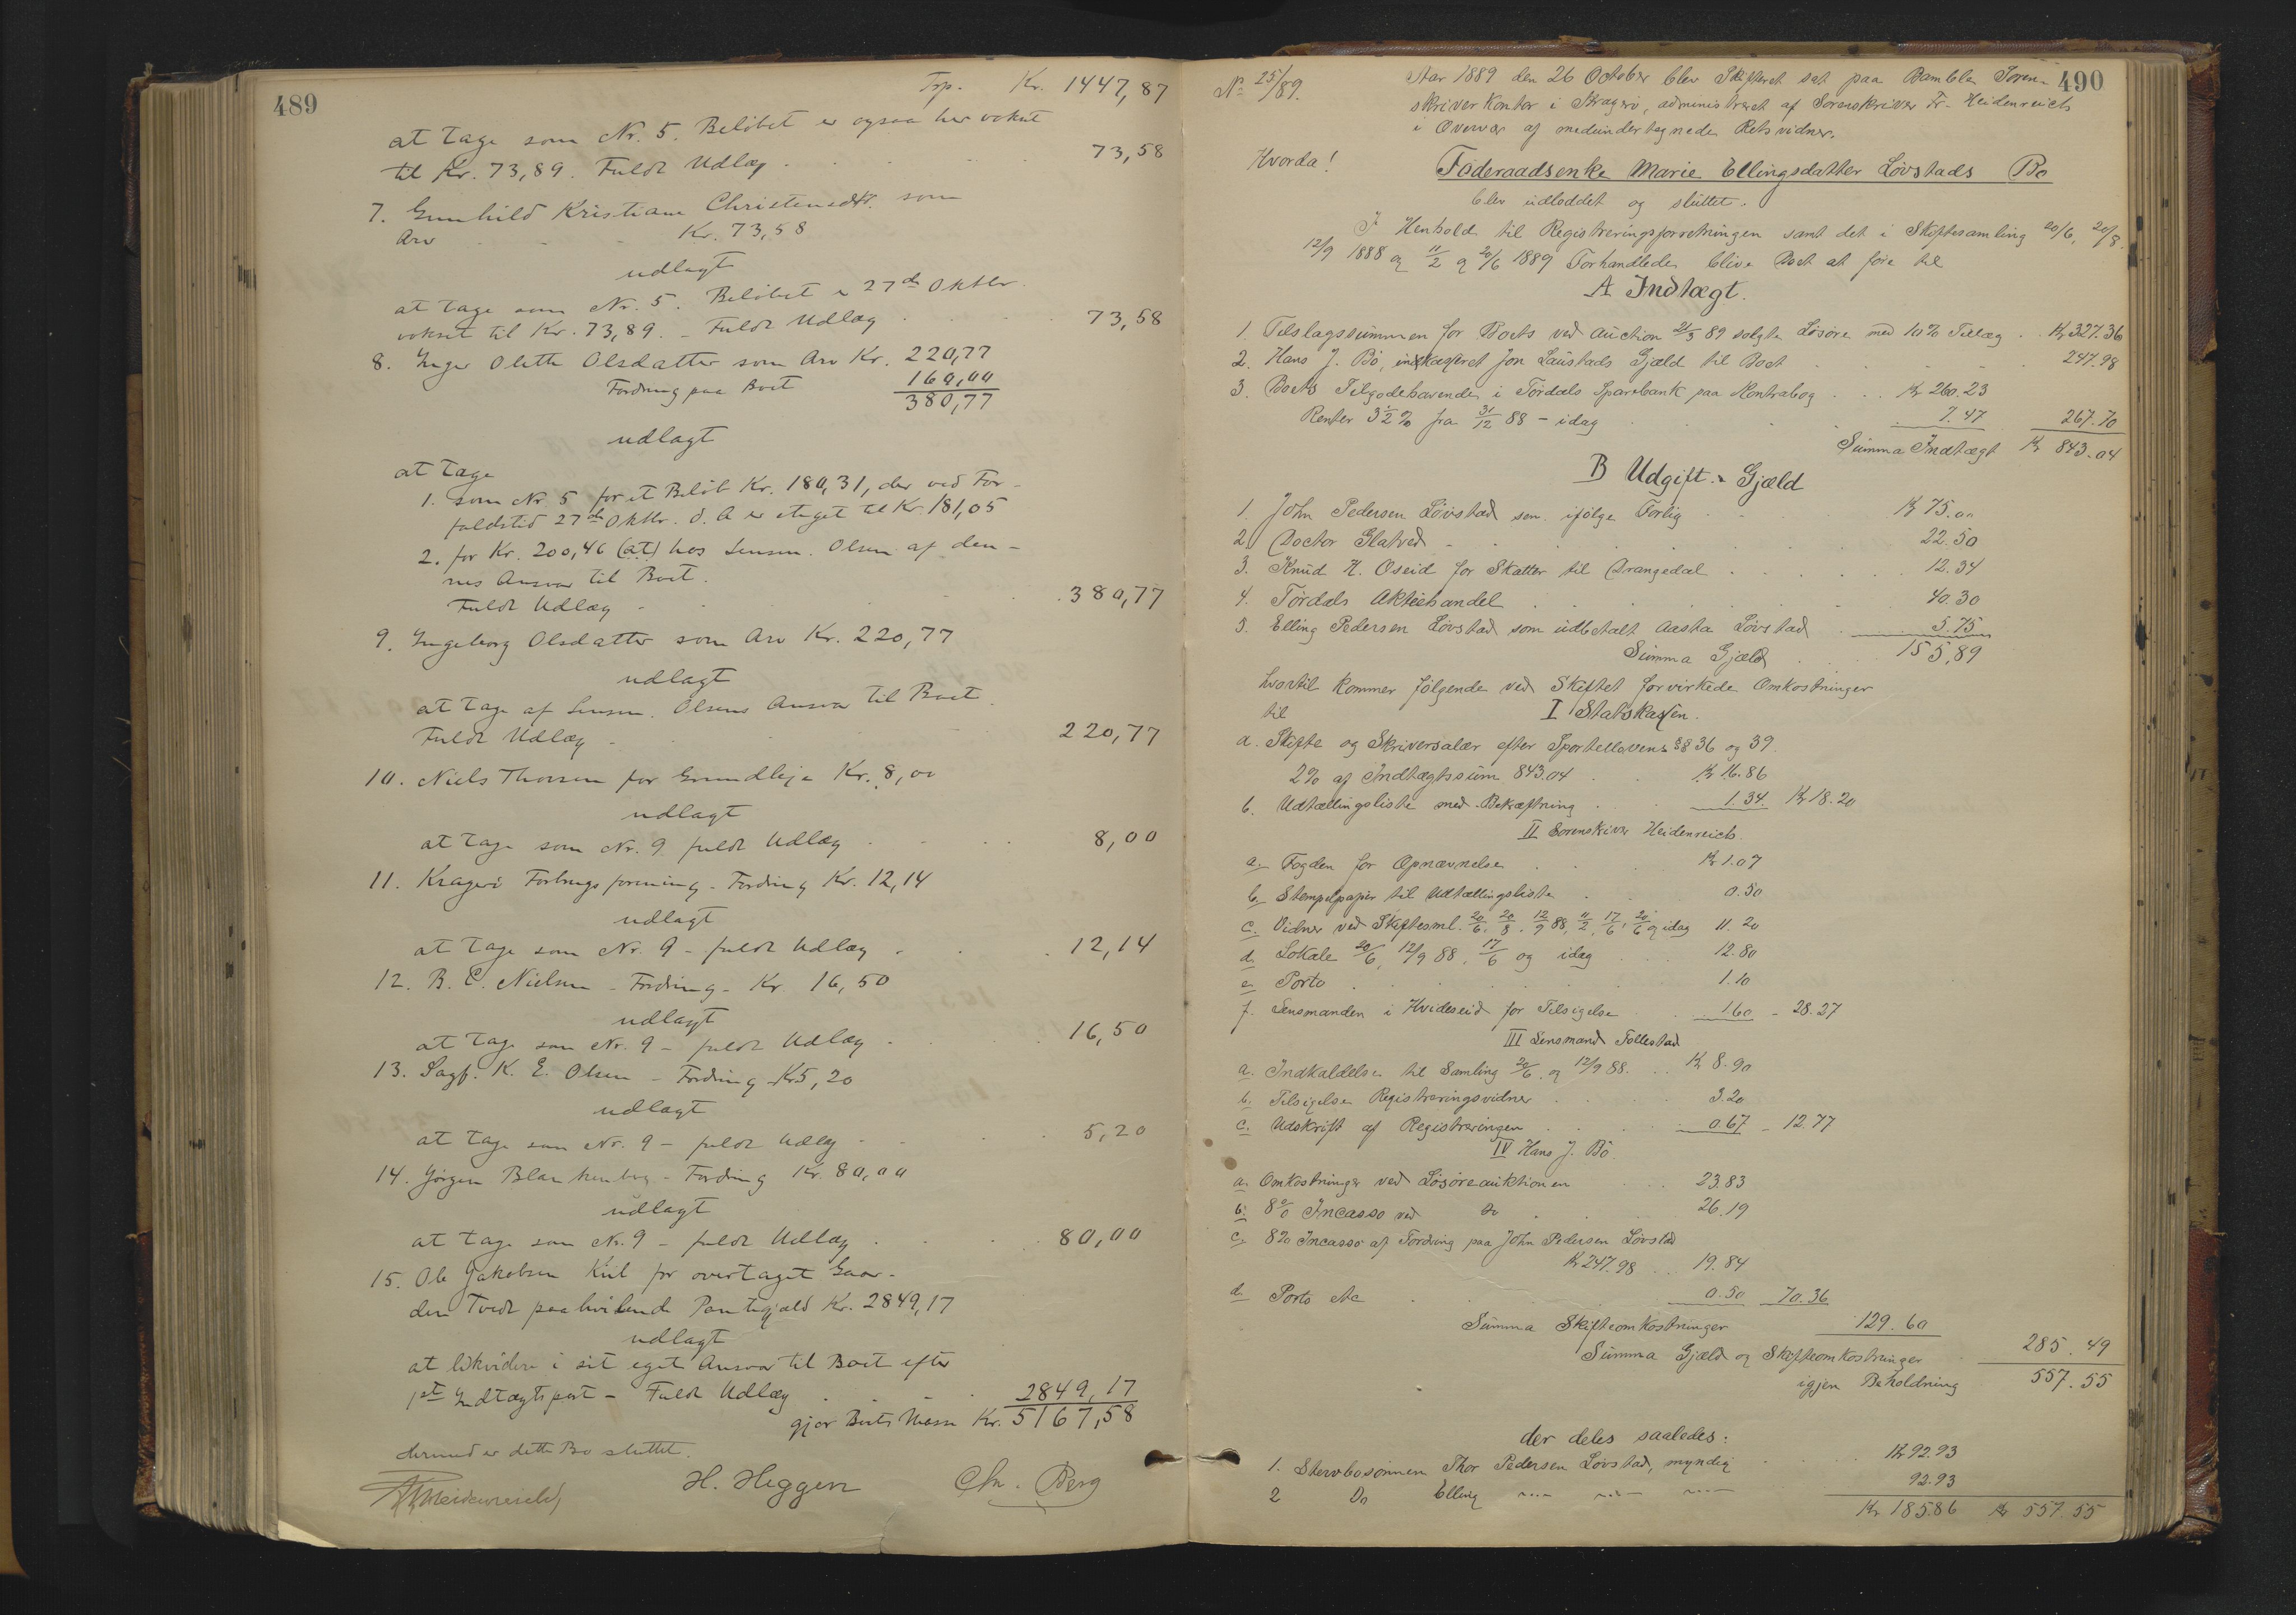 489
Trp. Kr. 1447,87
at tage som Nr. 5. Beløbet er ogsaa her vokset
til Kr. 73,89. Fuldt Udlæg 73,58
7. Gunhild Kristiane Christensdtr. som
Arv Kr. 73,58
udlagt
at tage som Nr. 5. Beløbet er 27de Oktbr.
vokset til Kr. 73,89. - Fuldt Udlæg 73,58
8. Inger Olette Olsdatter som Arv Kr. 220,77
Fordring paa Boet 160,00
380,77
udlagt
at tage
1. som Nr 5 for et Beløb Kr. 180,31, der ved For-
faldstid 27de Oktbr. d. A er steget til Kr. 181,05
2. for Kr. 200,46 (at) hos Lensm. Olsen af den-
nes Ansvar til Boet.
Fuldt Udlæg - 380,77
9. Ingeborg Olsdatter som Arv Kr. 220,77
udlagt
at tage af Lensm. Olsens Ansvar til Boet.
Fuldt Udlæg - 220,77
10. Niels Thorsen for Grundleje Kr. 8,00
udlagt
at tage som Nr. 9 fuldt Udlæg 8,00
11. Kragerø Forbrugsforening - Fordring Kr. 12,14
udlagt
at tage som Nr. 9 - fuldt Udlæg 12,14
12. B. C. Nielsen - Fordring - Kr. 16,50
udlagt
at tage som Nr. 9 - fuldt Udlæg 16,50
13. Sagf. K. E. Olsen - Fordring Kr 5,20
udlagt
at tage som Nr. 9 - fuldt Udlæg 5,20
14. Jørgen Blankenborg - Fordring Kr. 80,00
udlagt
at tage som Nr. 9 - fuldt Udlæg 80,00
15. Ole Jakobsen Kiil for overtaget Gaar-
den Tvedt paahvilende Pantegjæld Kr. 2849,17
udlagt
at likvidere i sit eget Ansvar til Boet efter
1ste Indtægtspost - Fuldt Udlæg 2849,17
gjør Boets Masse Kr. 5167,58
Hermed er dette Bo sluttet.
Fr Heidenreich H. Heggen Chr. Berg
490
No 25/89. Aar 1889 den 26 October blev Skifteret sat paa Bamble Soren-
skriver Kontor i Kragerø, administreret af Sorenskriver Fr. Heidenreich
i Overvær af medundertegnede Retsvidner.
Hvorda! Føderaadsenke Marie Ellingsdatter Løvstads Bo
blev udloddet og sluttet.
I Henhold til Registreringsforretningen samt det i Skiftesamling 20/6, 20/8.
12/9 1888 og 11/2 og 20/6 1889 Forhandlede blive Boet at føre til
A Indtægt.
1. Tilslagssummen for Boets ved Auction 21/3 89 solgte Løsøre med 10% Tillæg. Kr 327.36
2. Hans J. Bø, indkasseret Jon Laustads Gjæld til Boet 247.98
3. Boets Tilgodehavende i Tørdals Sparebank paa Kontrabog Kr 260.23
Renter 3½% fra 31/12 88 - idag 7.47 267.70
Summa Indtægt Kr 843.04
B Udgift. Gjæld
1. John Pedersen Løvstad sen. ifølge Forlig Kr 75.00
2. Doctor Glatved 22.50
3. Knud H. Oseid for Skatter til Drangedal 12.34
4. Tørdals Aktiehandel 40.30
5. Elling Pedersen Løvstad som udbetalt Aasta Løvstad 5.75
Summa Gjæld 155,89
hvortil kommer følgende ved Skiftet forvirkede Omkostninger
til I Statskassen.
a. Skifte og Skriversalær efter Sportellovens §§ 36 og 39.
2% af Indtægtssum 843.04 Kr 16.86
b. Udtællingsliste med Bekræftning 1.34. Kr 18.20
II Sorenskriver Heidenreich
a. Fogden for Opnævnelse Kr 1.07
b. Stempelpapir til Udtællingsliste 0.50
c. Vidner ved Skiftesml. 20/6, 20/8, 12/9 88, 11/2, 17/6, 20/6 og idag 11.20
d. Lokale 20/6, 12/9 88, 17/6 og idag 12.80
e. Porto 1.10
f. Lensmanden i Hvideseid for Tilsigelse 1.60 - 28.27
III Lensmand Follestad
a. Indkaldelse til Samling 20/6 og 12/9 88. Kr 8.90
b. Tilsigelse Registreringsvidner 3.20
c. Udskrift af Registreringen 0.67 - 12.77
IV Hans J. Bø.
a. Omkostninger ved Løsøreauktionen 23.83
b. 8% Incasso ved do 26.19
c. 8% Incasso af Fordring paa John Pedersen Løvstad
Kr 247.98 19.84
d. Porto etc 0.50 70.36
Summa Skifteomkostninger 129.60
Summa Gjæld og Skifteomkostninger 285.49
igjen Beholdning 557.55
der deles saaledes:
1. Stervbosønnen Thor Pedersen Løvstad, myndig Kr 92.93
2 Do Elling 92.93
Kr 185.86 Kr 557.55